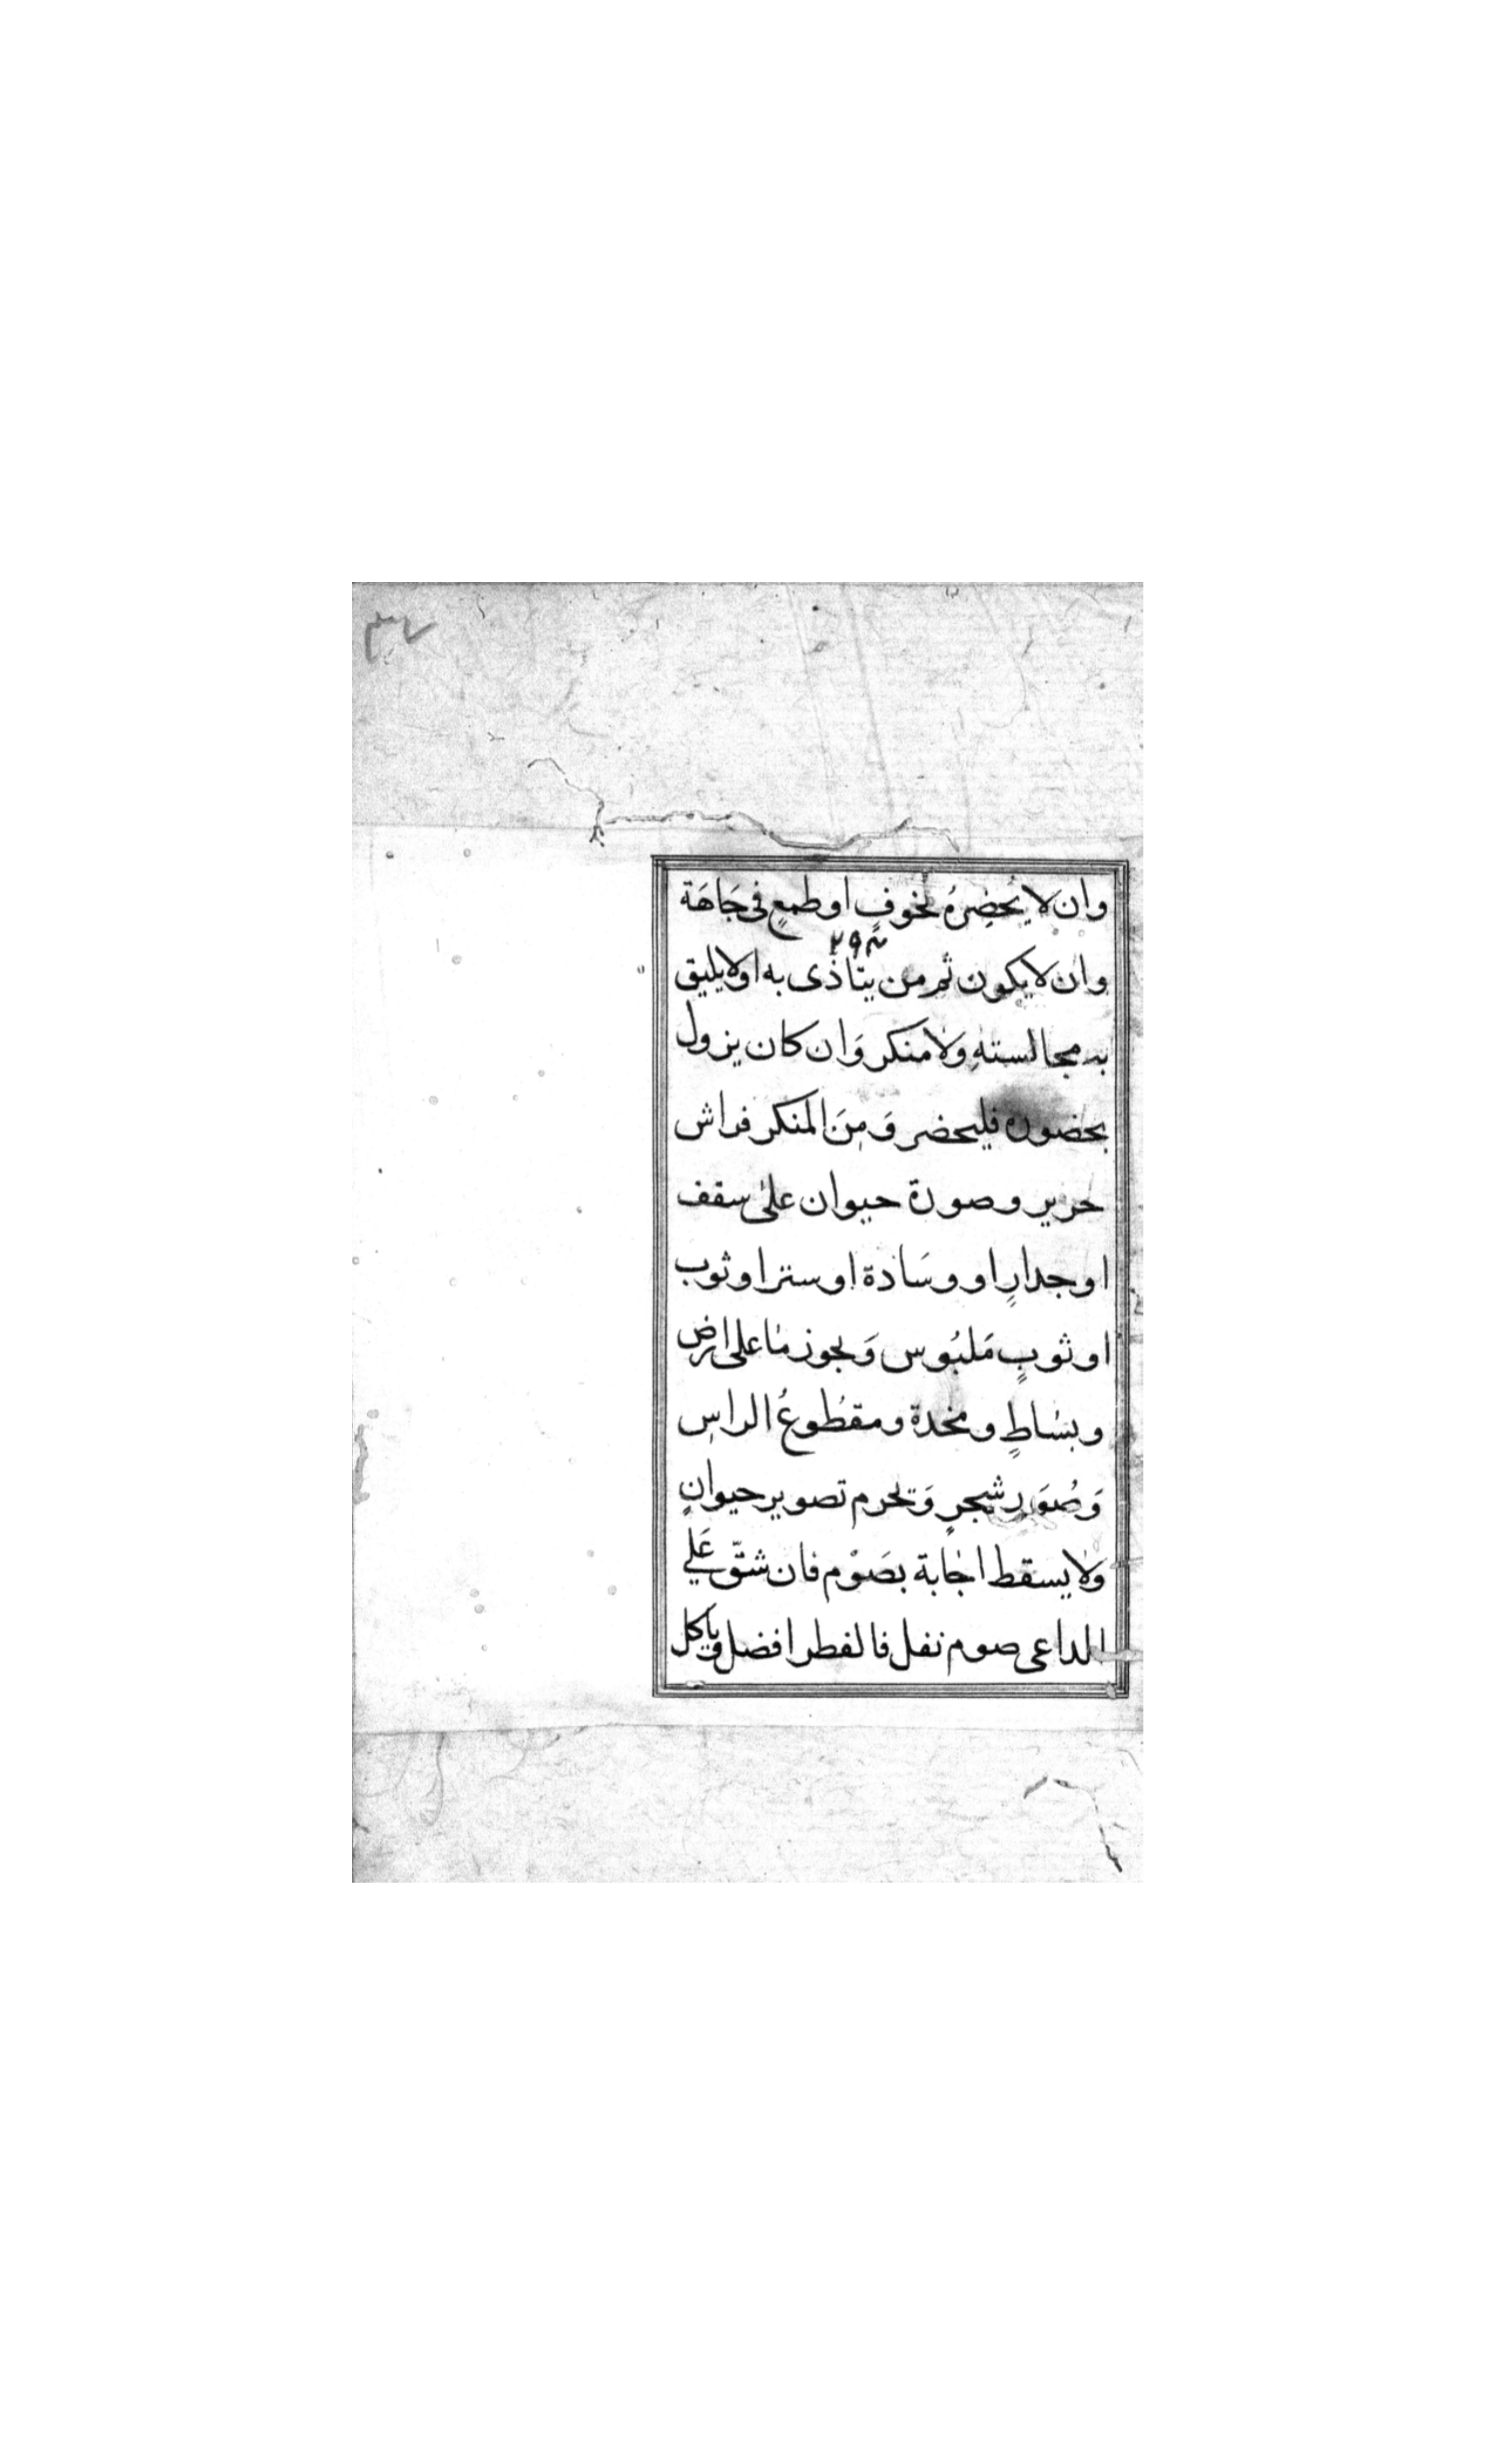 ٣٧
وان لا يُحضِرهُ لخوفٍ او طمعٍ فى جَاهَة
وان لا يكون ثم من يتاذى به اولا يليق
به مجالستهِ ولا منكر وَان كان يزول
بحضوره فليحضر وَمِنَ المنكر فراش
حرير وصورة حيوان على سقف
او جدارٍ او وسَادة او ستر او ثوب
او ثوبٍ مَلبُوس وَيجوز ما على ارض
وبسَاطٍ ومخدة ومقطُوعُ الراسِ
وَصُوَرِ شجرٍ وَتحرم تصوير حيوانٍ
ولا يسقط اجابة بصَوْم فان شقّ عَلي
الداعى صوم نفل فالفطر افضل وياكل